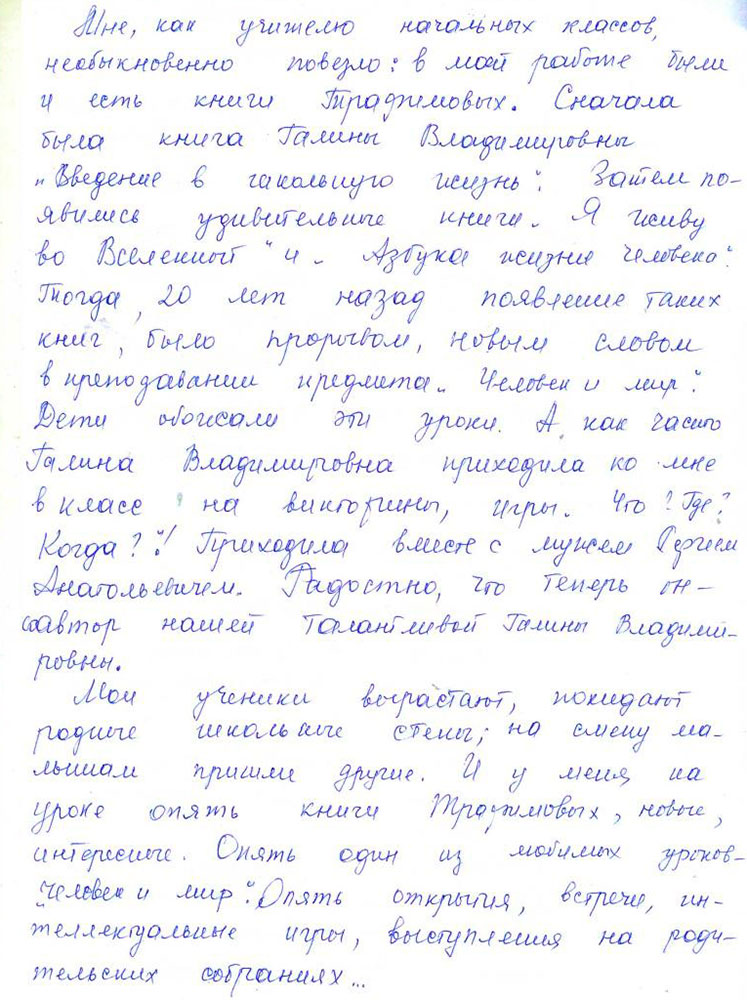 Мне, как учителю начальных классов,
необыкновенно повезло: в моей работе были
и есть книги Трафимовых. Сначала
была книга Галины Владимировны
„Введение в школьную жизнь". Затем по-
явились удивительные книги „Я живу
во Вселенной" и „Азбука жизни человека".
Тогда, 20 лет назад появление таких
книг, было прорывом, новым словом
в преподавании предмета „Человек и мир".
Дети обожали эти уроки. А, как часто
Галина Владимировна приходила ко мне
в класс на викторины, игры „Что? Где?
Когда?"! Приходила вместе с мужем Сергеем
Анатольевичем. Радостно, что теперь он –
соавтор нашей талантливой Галины Владими-
ровны.
Мои ученики вырастают, покидают
родные школьные стены; на смену ма-
лышам пришли другие. И у меня на
уроке опять книги Трафимовых, новые,
интересные. Опять один из любимых уроков –
„Человек и мир". Опять открытия, встречи, ин-
теллектуальные игры, выступления на роди-
тельских собраниях...